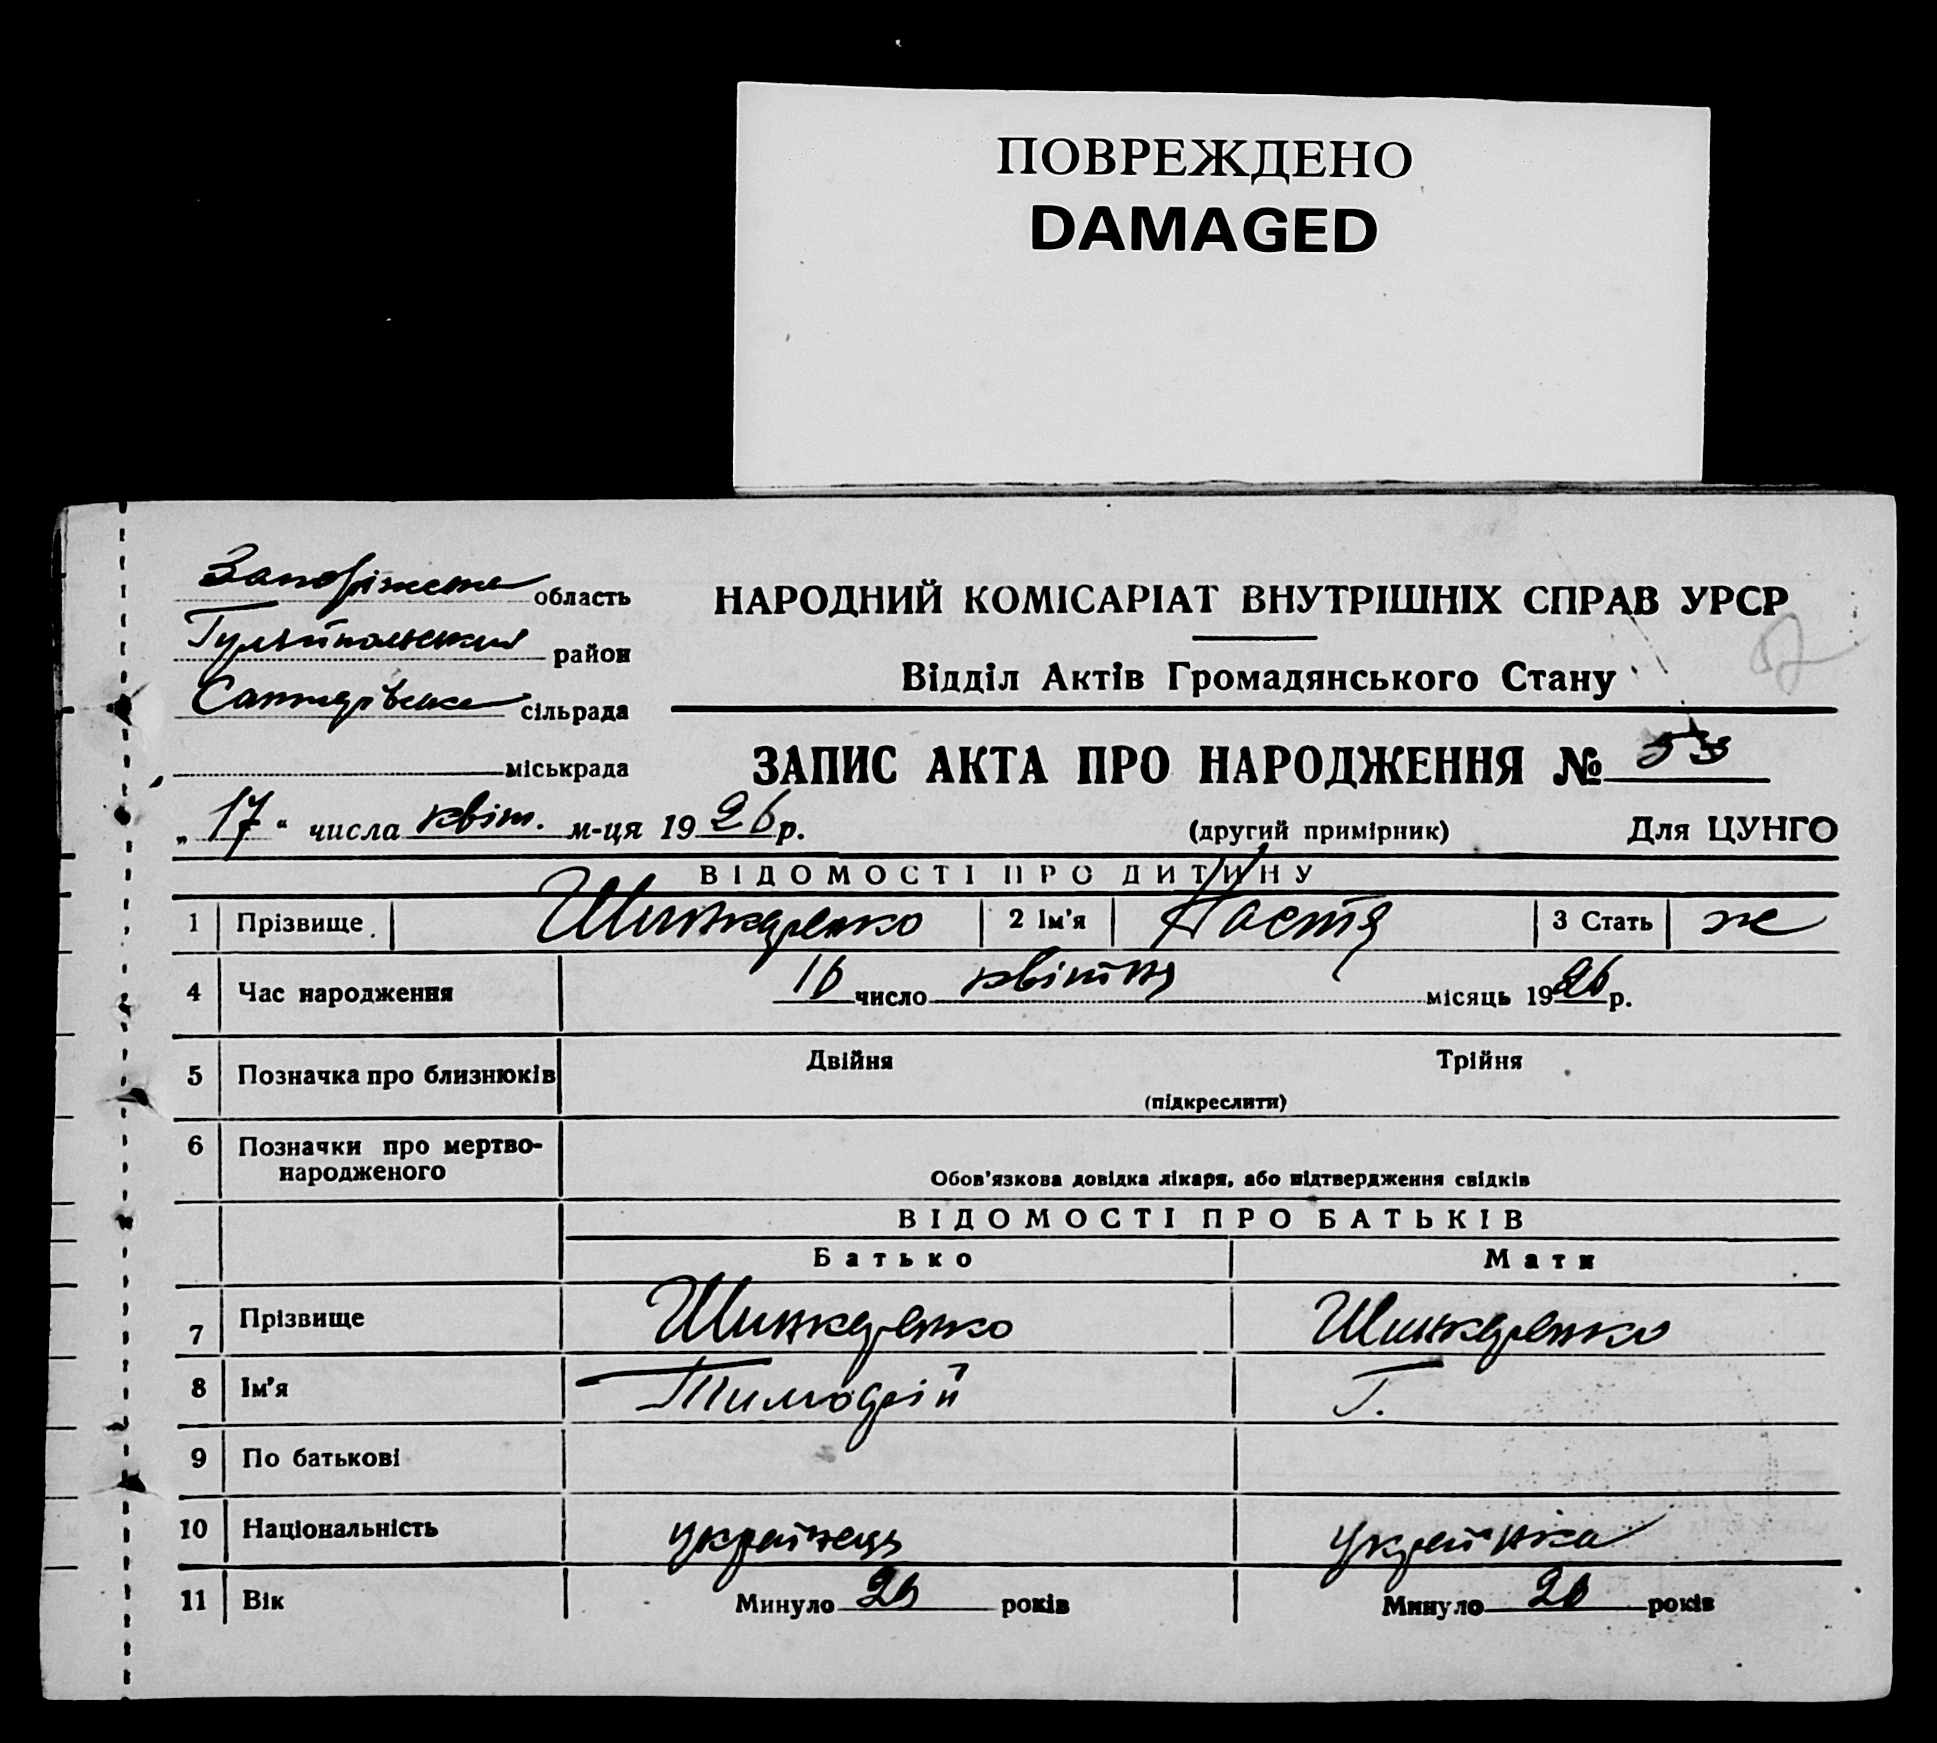 ПОВРЕЖДЕНО
DAMAGED
Запоріжська область
Гуляйпольський район
Санжарівська сільрада
міськрада
„ 17 “ числа квіт. м-ця 1926 р.
НАРОДНИЙ КОМІСАРІАТ ВНУТРІШНІХ СПРАВ УРСР
Відділ Актів Громадянського Стану
ЗАПИС АКТА ПРО НАРОДЖЕННЯ № 53
(другий примірник) Для ЦУНГО
ВІДОМОСТІ ПРО ДИТИНУ
1 Прізвище Шинкаренко 2 Ім’я Настя 3 Стать ж
4 Час народження 16 число квітня місяць 1926 р.
5 Позначка про близнюків Двійня Трійня
(підкреслити)
6 Позначки про мертво-
народженого
Обов’язкова довідка лікаря, або підтвердження свідків
ВІДОМОСТІ ПРО БАТЬКІВ
Батько Мати
7 Прізвище Шинкаренко Шинкаренко
8 Ім’я Тимофій Г.
9 По батькові
10 Національність українець українка
11 Вік Минуло 26 років Минуло 26 років